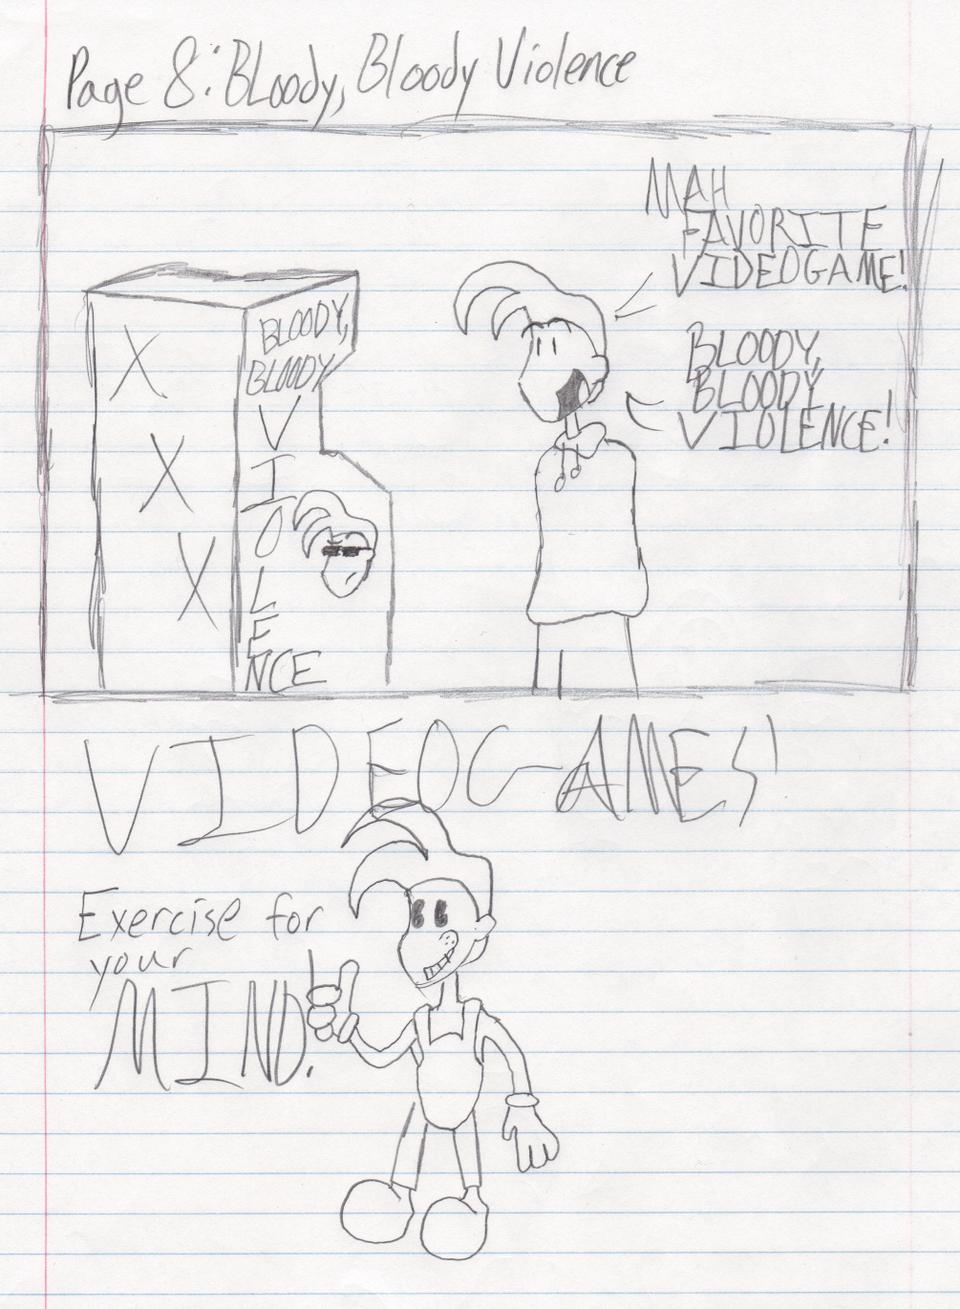 Page 8: Bloody, Bloody Violence
MAH
FAVORITE
VIDEOGAME!
BLOODY,
BLOODY
VIOLENCE!
X
X
X
BLOODY,
BLOODY
V
I
O
L
E
NCE
VIDEOGAMES!
Exercise for
your
MIND.